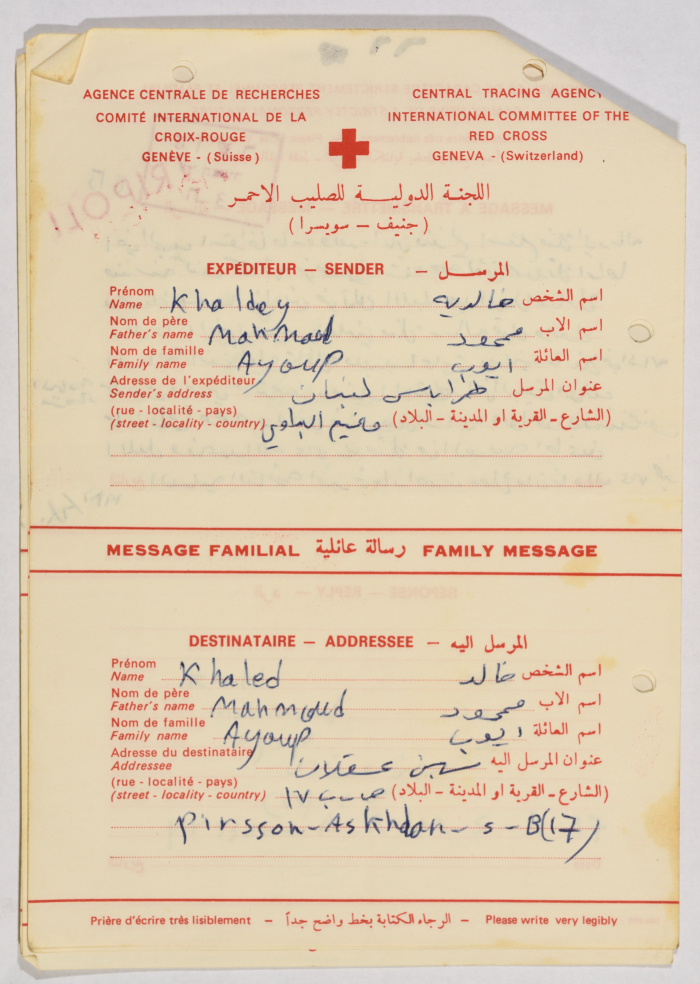 AGENCE CENTRALE DE RECHERCHES
COMITÉ INTERNATIONAL DE LA
CROIX-ROUGE
GENÈVE - (Suisse)
CENTRAL TRACING AGENCY
INTERNATIONAL COMMITTEE OF THE
RED CROSS
GENEVA - (Switzerland)
TRIPOLI
اللجنة الدولية للصليب الاحمر
(جنيف - سويسرا)
EXPÉDITEUR — SENDER — المرسل
Prénom
Name Khaldey خالديه اسم الشخص
Nom de père
Father's name Mahmoud محمود اسم الاب
Nom de famille
Family name Ayoup ايوب اسم العائلة
Adresse de l'expéditeur
Sender's address طرابلس لبنان عنوان المرسل
(rue - localité - pays)
(street - locality - country) مخيم البداوي (الشارع - القرية او المدينة - البلاد)
MESSAGE FAMILIAL رسالة عائلية FAMILY MESSAGE
DESTINATAIRE — ADDRESSEE — المرسل اليه
Prénom
Name Khaled خالد اسم الشخص
Nom de père
Father's name Mahmoud محمود اسم الاب
Nom de famille
Family name Ayoup ايوب اسم العائلة
Adresse du destinataire
Addressee سجن عسقلان عنوان المرسل اليه
(rue - localité - pays)
(street - locality - country) ص.ب ١٧ (الشارع - القرية او المدينة - البلاد)
Pirsson-Askhlan-s-B(17)
Prière d'écrire très lisiblement — الرجاء الكتابة بخط واضح جداً — Please write very legibly